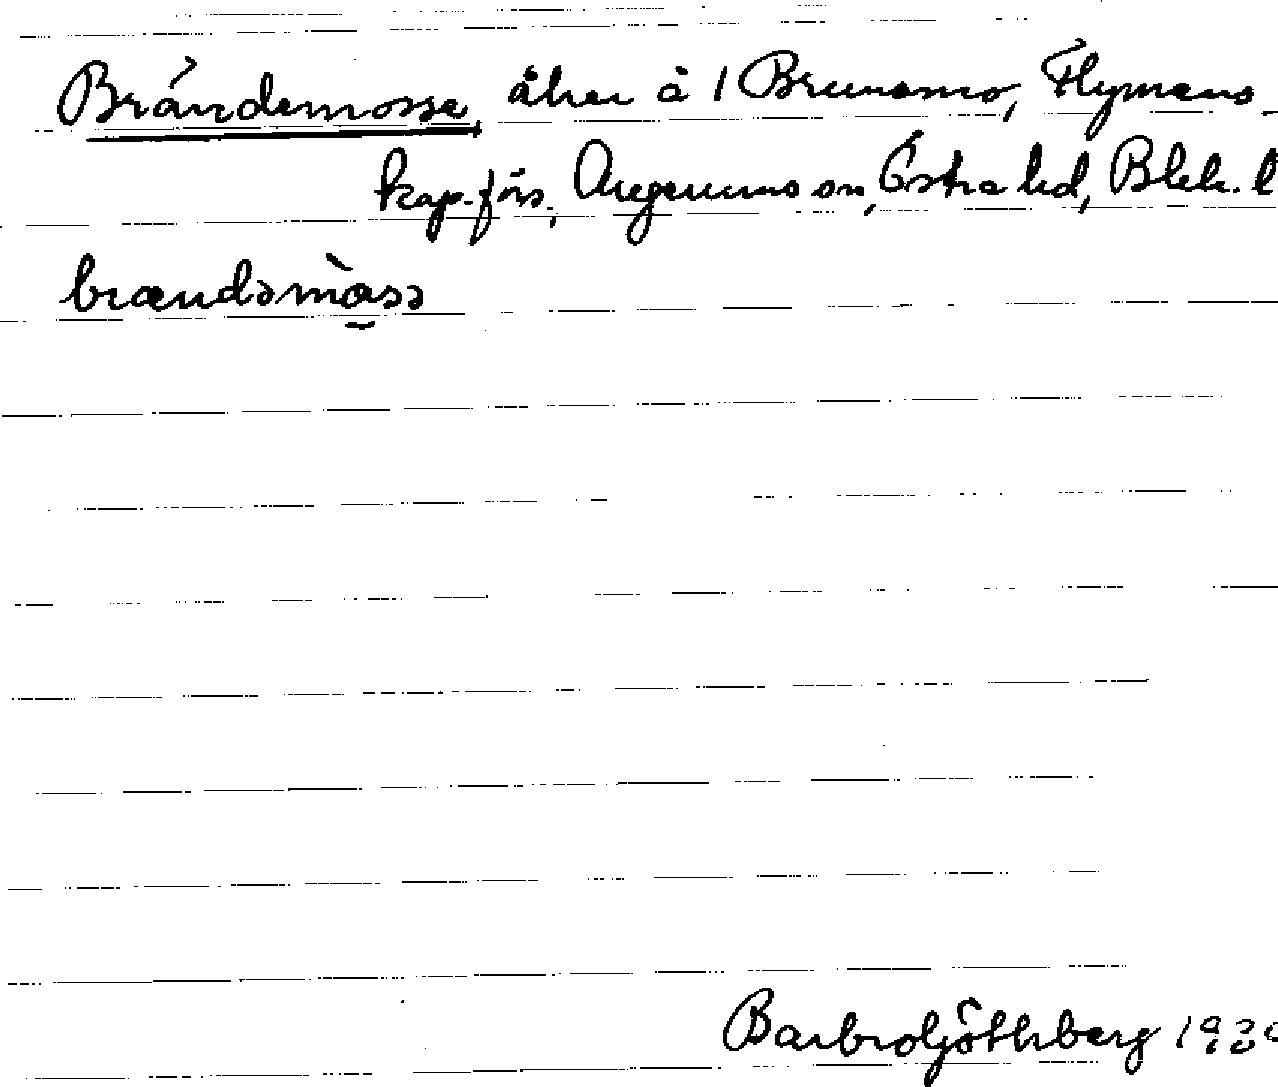 Brändemosse, åker å 1 Brunsmo, Flymens
kap.förs. Augerums sn, Östra hd, Blek. l
brændəmåsə
Barbro Göthberg 193